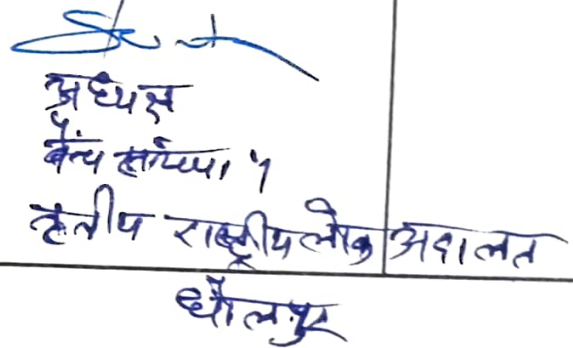 अध्यक्ष
बैंच संख्या 1
तृतीय राष्ट्रीय लोक अदालत
धौलपुर